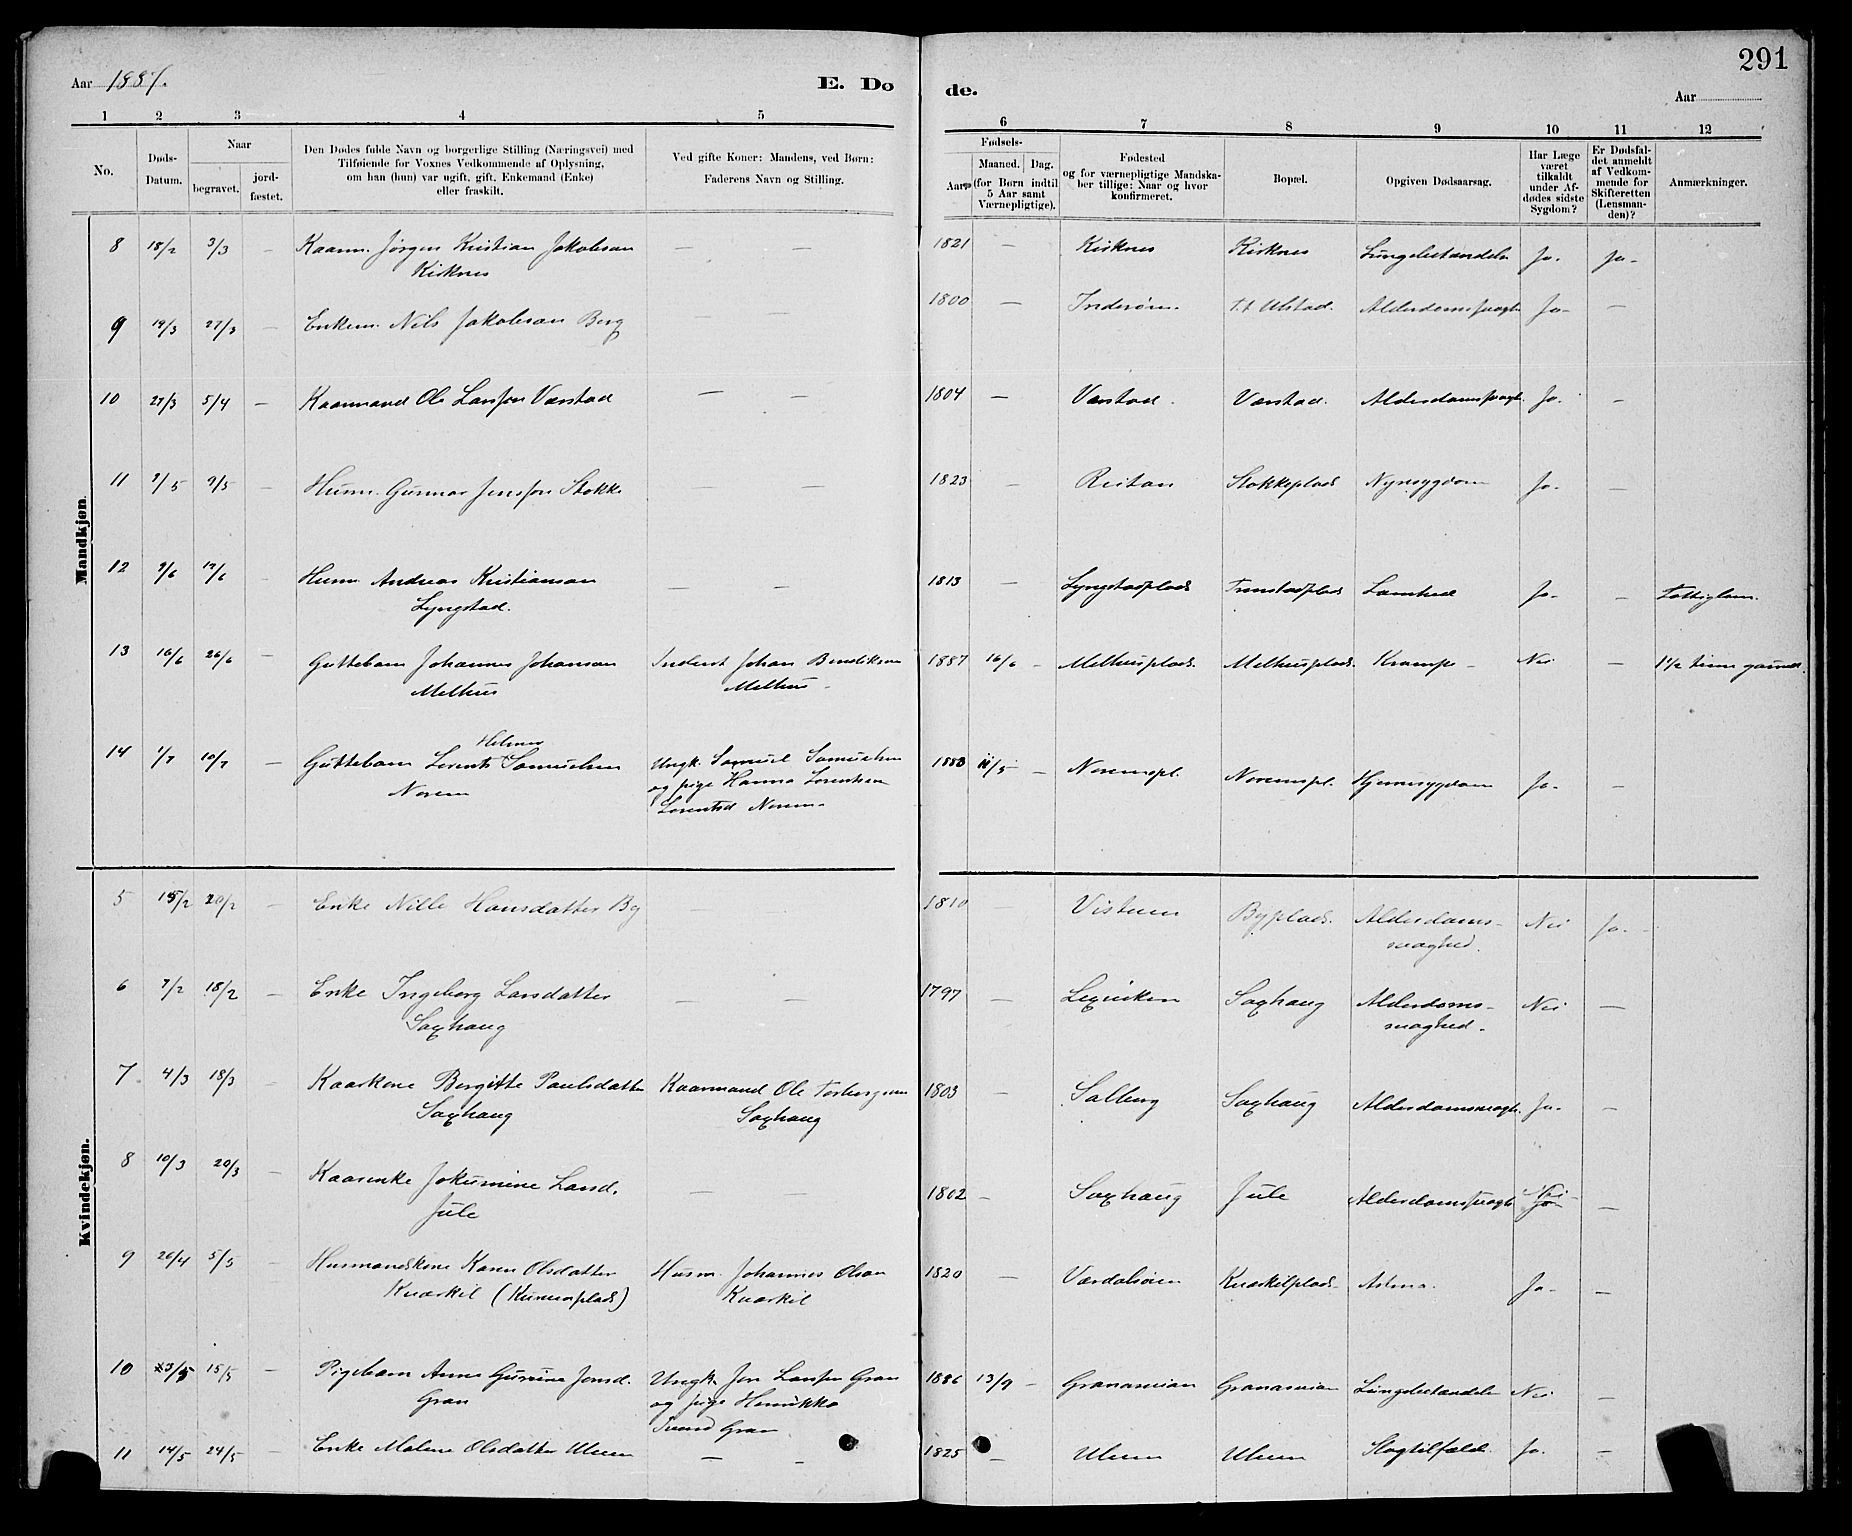 291
Aar 1887.
E. Dø
de.
Aar
1 2 3 4 5 6 7 8 9 10 11 12
No.
Døds-Datum.
Naar
begravet.
jord-fæstet.
Den Dødes fulde Navn og borgerlige Stilling (Næringsvei) med
Tilføiende for Voxnes Vedkommende af Oplysning,
om han (hun) var ugift, gift, Enkemand (Enke)
eller fraskilt.
Ved gifte Koner: Mandens, ved Børn:
Faderens Navn og Stilling.
Fødsels-
Aar
Maaned. Dag.
(for Børn indtil
5 Aar samt
Værnepligtige).
Fødested
og for værnepligtige Mandska-
ber tillige: Naar og hvor
konfirmeret.
Bopæl.
Opgiven Dødsaarsag.
Har Læge
været
tilkaldt
under Af-
dødes sidste
Sygdom?
Er Dødsfal-
det anmeldt
af Vedkom-
mende for
Skifteretten
(Lensman-
den)?
Anmærkninger.
Mandkjøn.
8 18/2 3/3 — Kaarm. Jørgen Kristian Jakobsen — — 1821 — Kirknes Kirknes Lungebetændelse Ja. Ja-
Kirknes
9 19/3 27/3 — Enkem. Nils Jakobsen Berg — — 1800 — Inderøen Ulstad. Alderdomssvagh. Ja- —
10 27/3 5/4 — Kaarmand Ole Larssen Værstad — — 1804 — Værstad. Værstad. Alderdomssvagh. Ja. —
11 2/5 9/5 Husm. Gunnar Jenssen Stokke — — 1823 — Ristan Stokkeplads Nyresygdom Ja. —
12 9/6 19/6 — Husm. Andreas Kristiansen — — 1813 — Lyngstadplads Lamhed Ja- — Fattiglem.
Lyngstad.
13 16/6 26/6 — Guttebarn Johannes Johansen Inderst Johan Bendiksen 1887 16/6 — Melhusplads. Melhusplads. Krampe — Nei — 1½ time gammel.
Melhus Melhus —
Helmer
14 1/7 10/7 — Guttebarn Lorents Samuelsen Ungk. Samuel Samuelsen 1883 11/5 — Noremspl. Noremspl. Hjernesygdom Ja. —
Norem og pige Hanna Lorentsen
Lorentsd Norem
Kvindekjøn.
5 15/2 20/2 Enke Nille Hansdatter By — — 1810 — Vistum Byplads. Alderdoms- Nei Ja. —
svaghed.
6 7/2 18/2 — Enke Ingeborg Larsdatter — — 1797 — Lexviken Saxhaug Alderdoms- Nei —
Saxhaug svaghed.
7 4/3 18/3 — Kaarkone Bergitte Paulsdatter Kaarmand Ole Torbergsen 1803 — Salberg Saxhaug Alderdomssvagh. Ja. —
Saxhaug Saxhaug
8 10/3 20/3 — Kaarenke Jokumine Larsd. — — 1802 — Saxhaug Jule Alderdomssvagh Nei Ja —
Jule
9 26/4 5/5 — Husmandskone Karen Olsdatter Husm. Johannes Olsen 1820 — Værdalsøren Kvarkilplads Astma. Ja- —
Kværkil Kværkil
10 3/5 15/5 — Pigebarn Anne Gurine Jonsd. Ungk. Jon Larssen Gran 1886 13/9 — Granasvian Granasvian Lungebetændelse Nei —
Gran og pige Henrikke
Gran
11 14/5 24/5 — Enke Malene Olsdatter Ulven — — 1825 — Ulven Ulven Slagtilfælde. Ja. —